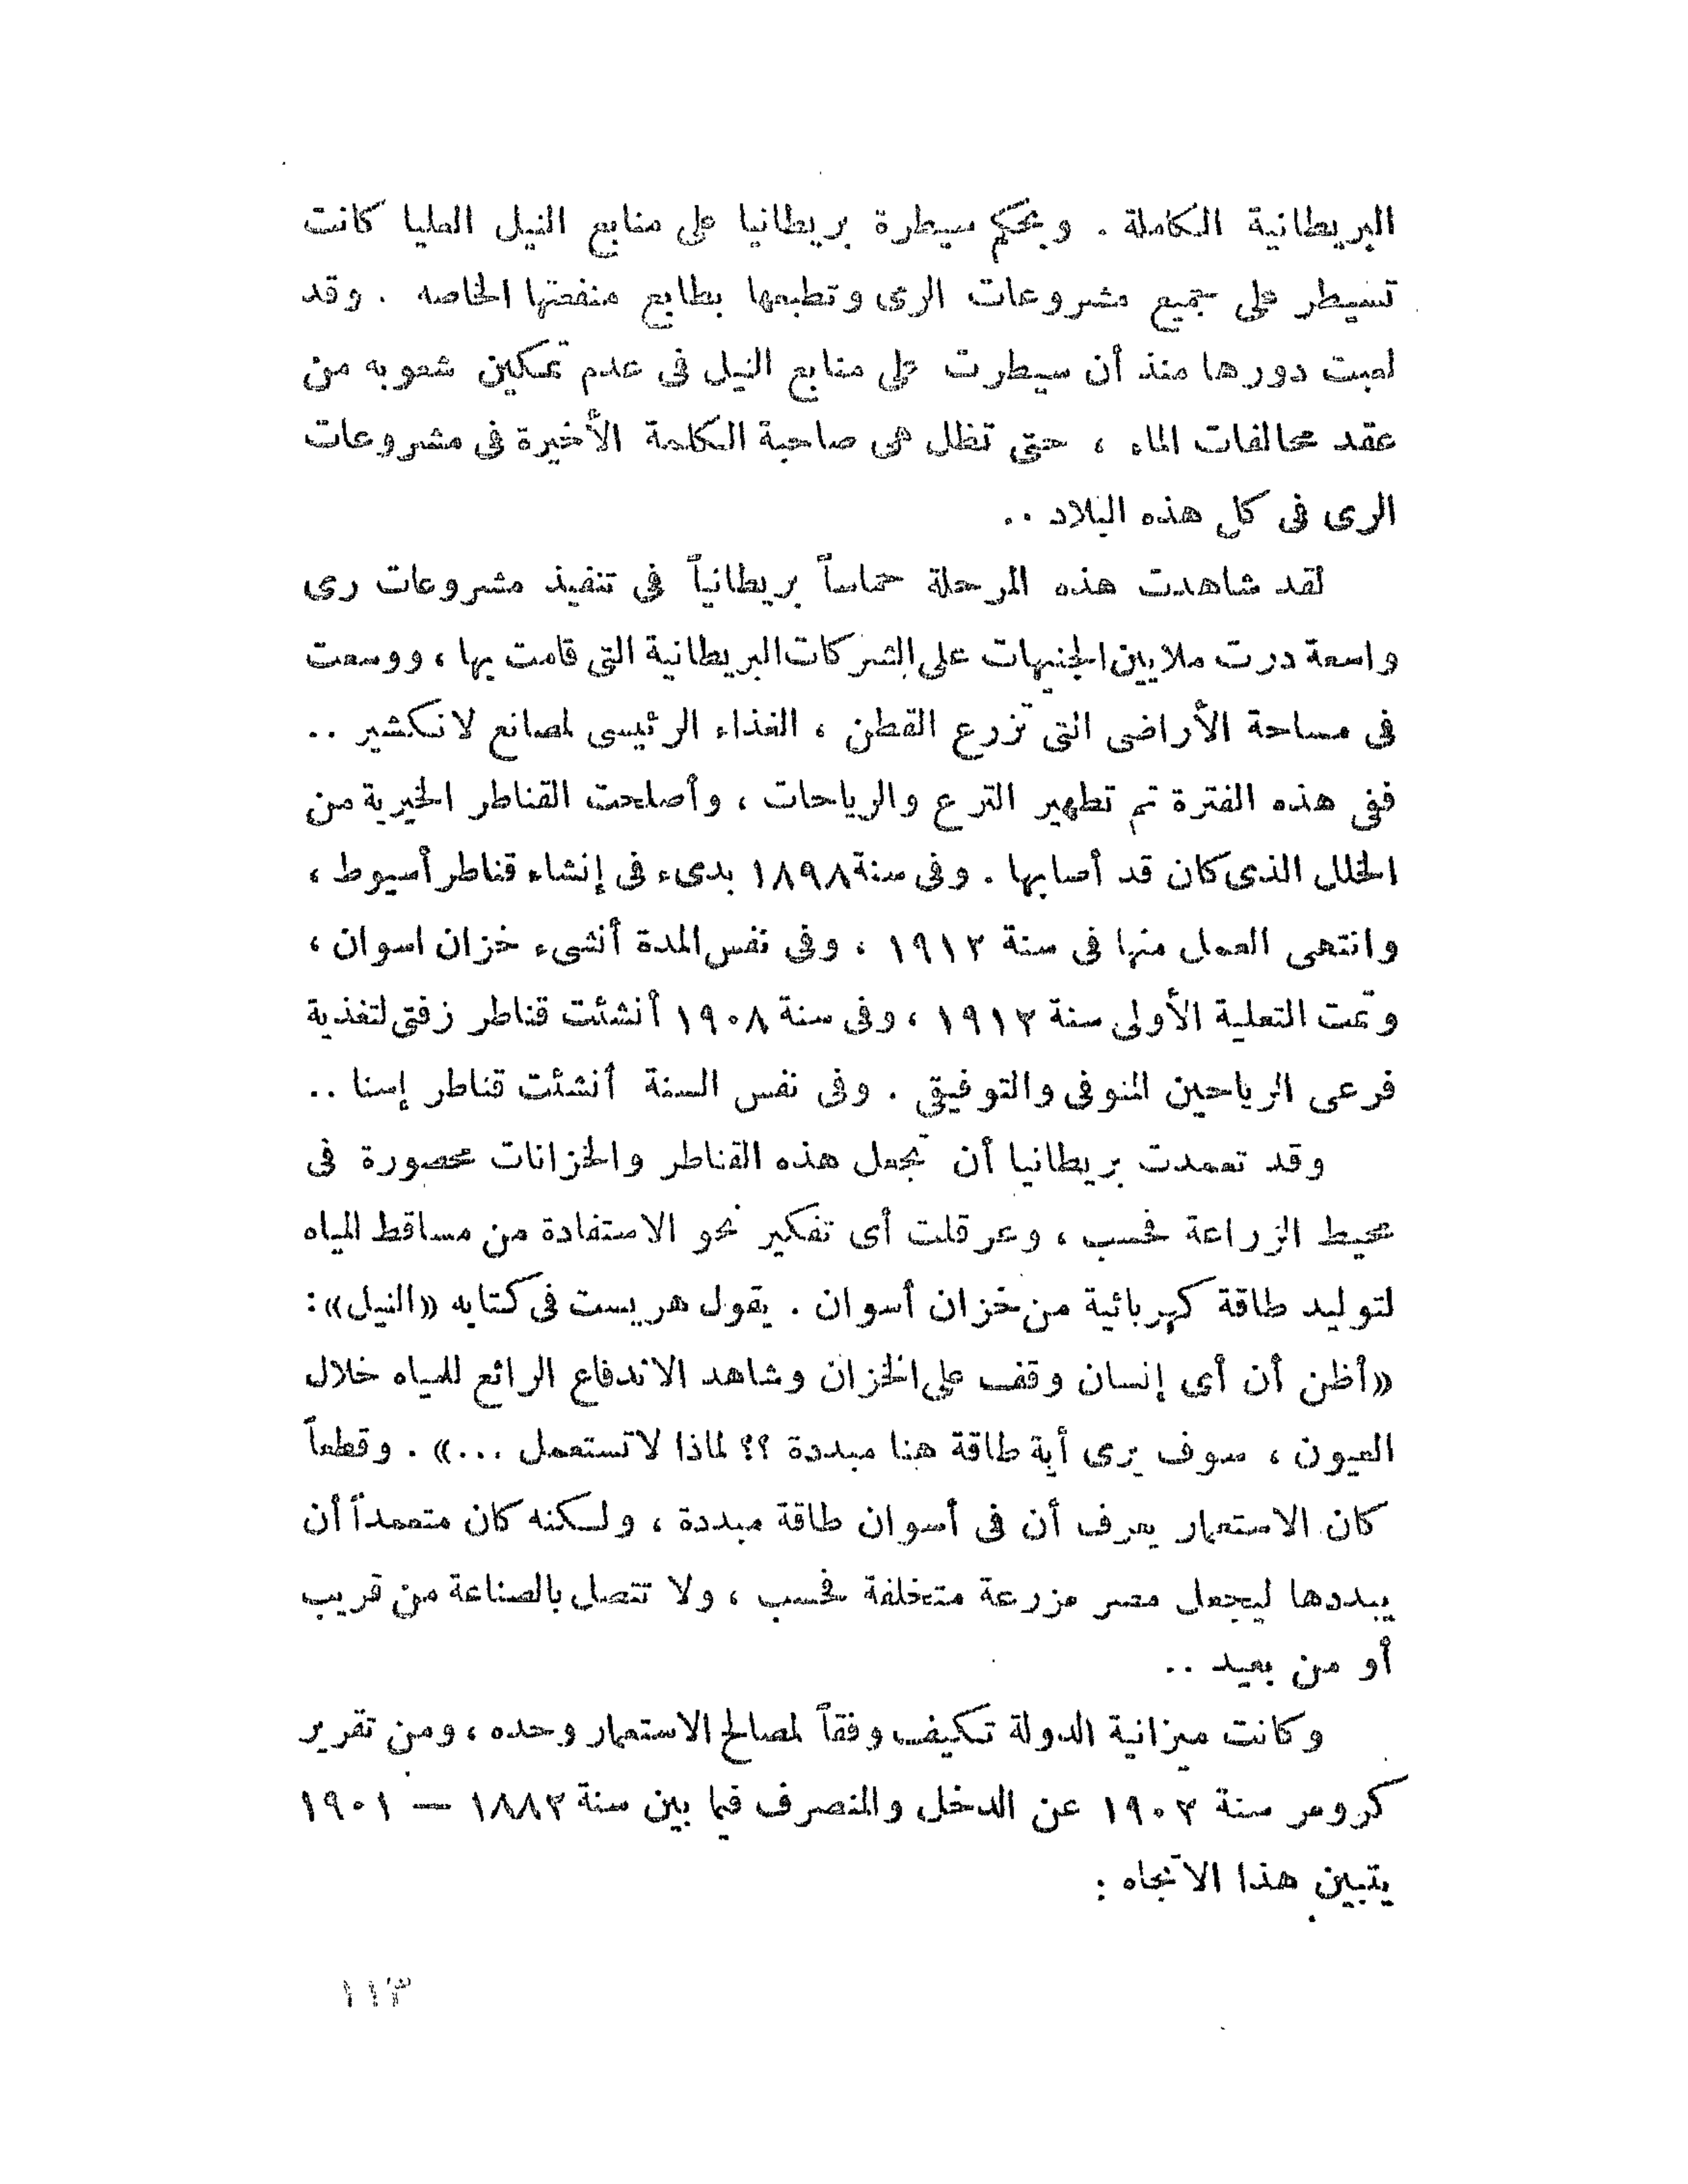 البريطانية الكاملة . وبحكم سيطرة بريطانيا على منابع النيل العليا كانت
تسيطر على جميع مشروعات الرى وتطبعها بطابع منفعتها الخاصه . وقد
لعبت دورها منذ أن سيطرت على منابع النيل فى عدم تمكين شعوبه من
عقد محالفات الماء ، حتى تظل هى صاحبة الكلمة الأخيرة فى مشروعات
الرى فى كل هذه البلاد ..
لقد شاهدت هذه المرحلة حماساً بريطانياً فى تنفيذ مشروعات رى
واسعة درت ملايين الجنيهات على الشركات البريطانية التى قامت بها ، ووسعت
فى مساحة الأراضى التى تزرع القطن ، الغذاء الرئيسى لمصانع لانكشير ..
ففى هذه الفترة تم تطهير الترع والرياحات ، وأصلحت القناطر الخيرية من
الخلل الذى كان قد أصابها . وفى سنة ١٨٩٨ بدىء فى إنشاء قناطر أسيوط ،
وانتهى العمل منها فى سنة ١٩١٢ ، وفى نفس المدة أنشىء خزان اسوان ،
وتمت التعلية الأولى سنة ١٩١٢ ، وفى سنة ١٩٠٨ أنشئت قناطر زفتى لتغذية
فرعى الرياحين المنوفى والتوفيقى . وفى نفس السنة أنشئت قناطر إسنا ..
وقد تعمدت بريطانيا أن تجعل هذه القناطر والخزانات محصورة فى
محيط الزراعة فحسب ، وعرقلت أى تفكير نحو الاستفادة من مساقط المياه
لتوليد طاقة كهربائية من خزان أسوان . يقول هريست فى كتابه «النيل» :
«أظن أن أى إنسان وقف على الخزان وشاهد الاندفاع الرائع للمياه خلال
العيون ، سوف يرى أية طاقة هنا مبددة ؟؟ لماذا لا تستعمل ...» . وقطعاً
كان الاستعمار يعرف أن فى أسوان طاقة مبددة ، ولكنه كان متعمداً أن
يبددها ليجعل مصر مزرعة متخلفة فحسب ، ولا تتصل بالصناعة من قريب
أو من بعيد ..
وكانت ميزانية الدولة تكيف وفقاً لمصالح الاستعمار وحده ، ومن تقرير
كرومر سنة ١٩٠٢ عن الدخل والمنصرف فيما بين سنة ١٨٨٢ — ١٩٠١
يتبين هذا الاتجاه :
١١٣